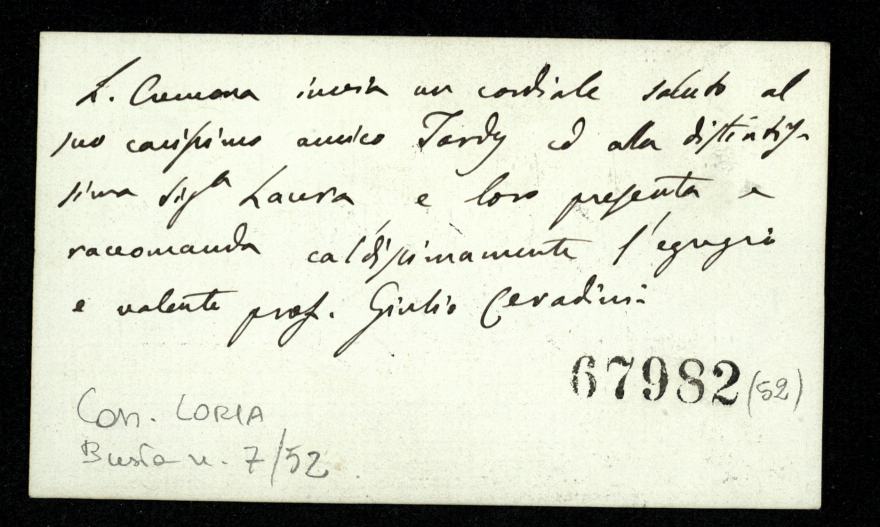 L. Cremona invia un cordiale saluto al
suo carissimo amico Tardy ed alla distintis-
sima Sigra Laura, e loro presenta e
raccomanda caldissimamente l'egregio
e valente prof. Giulio Ceradini.
67982 (52)
Con. LORIA
Busta n. 7/52